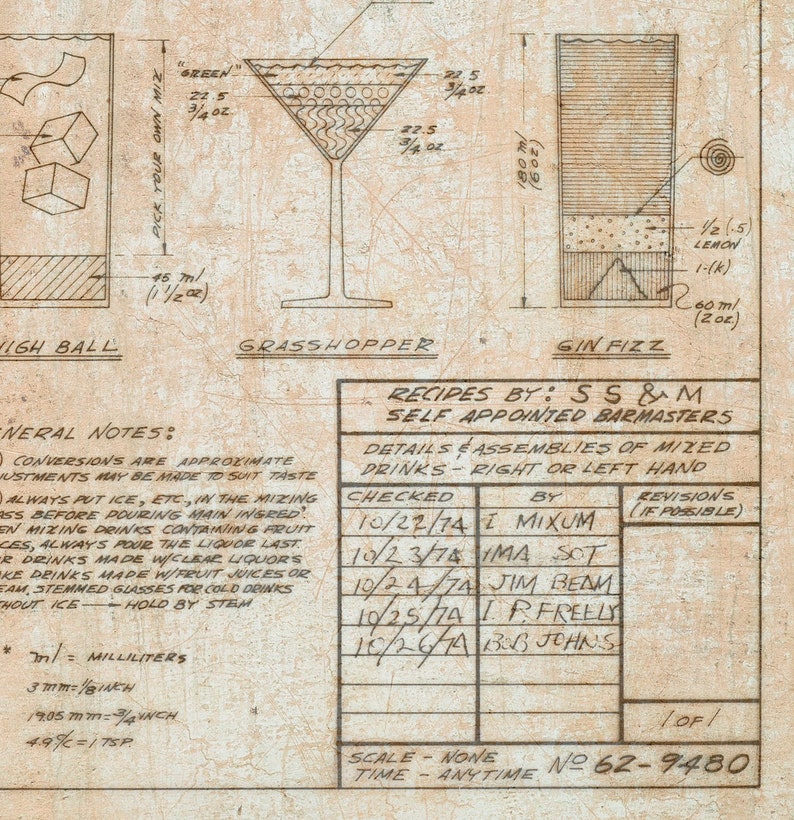 PICK YOUR OWN MIX
45 ml
(1 1/2 OZ)
HIGH BALL
"GREEN"
22.5
3/4 OZ.
22.5
3/4 OZ.
22.5
3/4 OZ.
GRASSHOPPER
180 ml
(6 OZ)
1/2 (.5)
LEMON
1-(K)
60 ml
(2 OZ.)
GIN FIZZ
NERAL NOTES:
) CONVERSIONS ARE APPROXIMATE
JUSTMENTS MAY BE MADE TO SUIT TASTE
) ALWAYS PUT ICE, ETC., IN THE MIXING
ASS BEFORE POURING MAIN INGRED'
EN MIXING DRINKS CONTAINING FRUIT
ICES, ALWAYS POUR THE LIQUOR LAST.
R DRINKS MADE W/CLEAR LIQUORS
AKE DRINKS MADE W/FRUIT JUICES OR
EAM, STEMMED GLASSES FOR COLD DRINKS
THOUT ICE — HOLD BY STEM
* ml = MILLILITERS
3 mm = 1/8 INCH
19.05 mm = 3/4 INCH
4.9 %c = 1 TSP.
RECIPES BY: S S & M
SELF APPOINTED BARMASTERS
DETAILS & ASSEMBLIES OF MIXED
DRINKS - RIGHT OR LEFT HAND
CHECKED BY REVISIONS
(IF POSSIBLE)
10/22/74 I MIXUM
10/23/74 IMA SOT
10/24/74 JIM BEAM
10/25/74 I P. FREELY
10/26/74 BOB JOHNS
1 OF 1
SCALE - NONE
TIME - ANYTIME Nº 62-9480